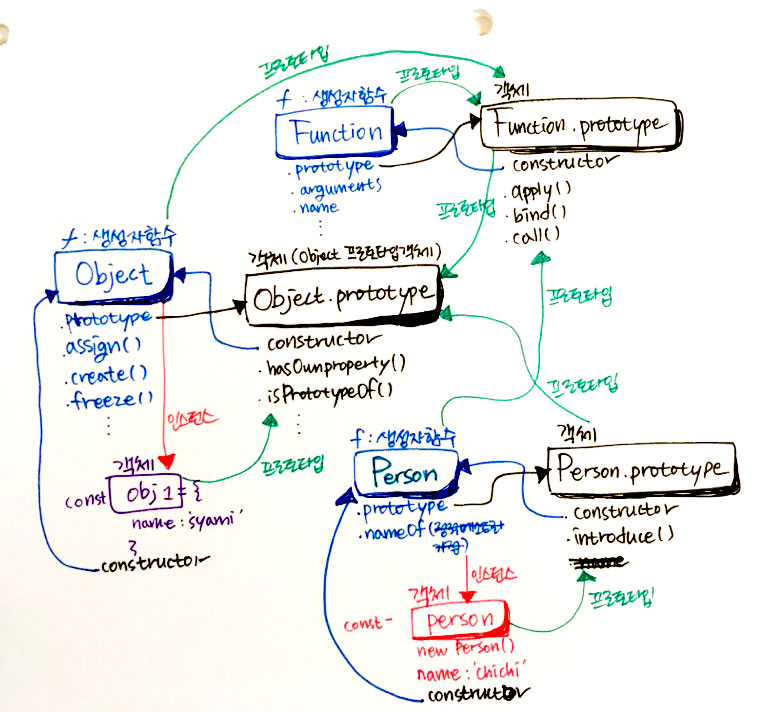 프로토타입
프로토타입
f : 생성자함수
Function
.prototype
.arguments
.name
객체
Function.prototype
constructor
.apply()
.bind()
.call()
프로토타입
f : 생성자함수
Object
.prototype
.assign()
.create()
.freeze()
객체 (Object 프로토타입객체)
Object.prototype
constructor
.hasOwnproperty()
.isPrototypeOf()
프로토타입
프로토타입
인스턴스
프로토타입
객체
const obj 1 = {
name : 'syami'
}
constructor
f : 생성자함수
Person
.prototype
.nameOf(
)
객체
Person.prototype
.constructor
.introduce()
인스턴스
프로토타입
객체
const- person
new Person()
name : 'chichi'
constructor